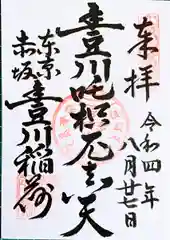 奉拝
令和四年
八月廿七日
豊川吒枳尼真天
東京
赤坂
豊川稲荷